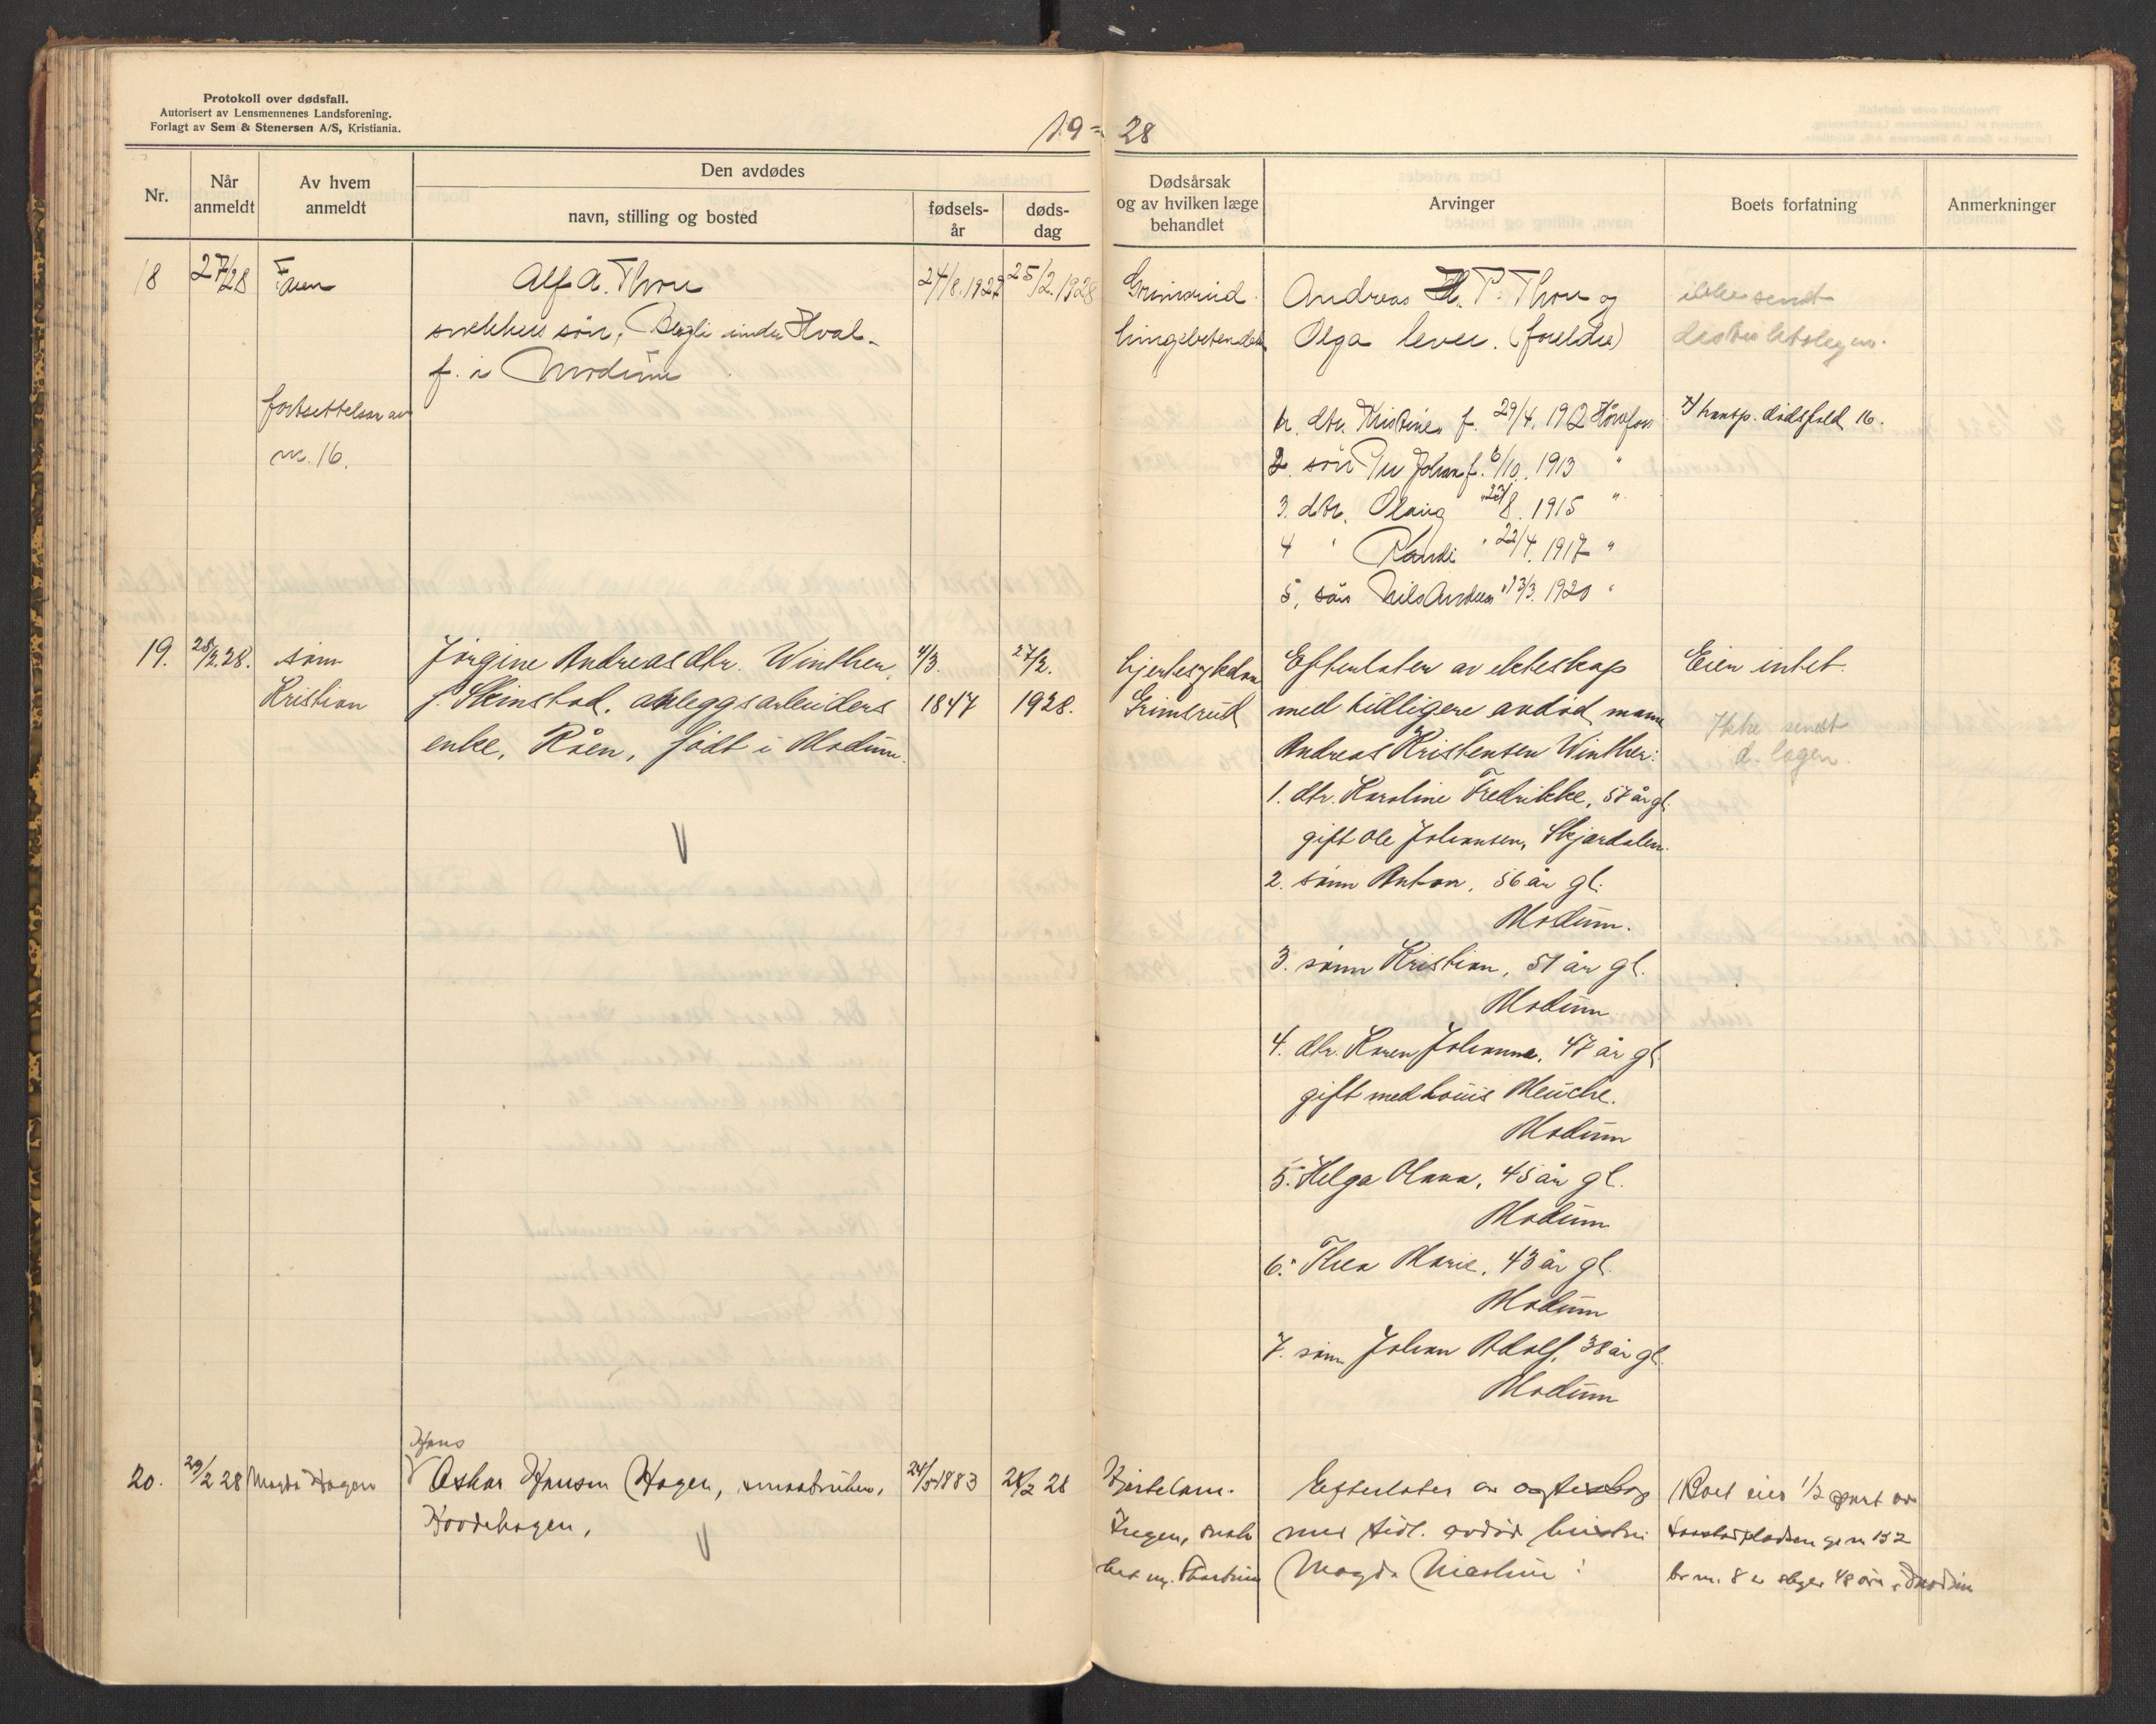 Protokoll over dødsfall.
Autorisert av Lensmennenes Landsforening.
Forlagt av Sem & Stenersen A/S, Kristiania.
19 = 28
Nr.
Når anmeldt
Av hvem anmeldt
Den avdødes
navn, stilling og bosted
fødsels-
år
døds-
dag
Dødsårsak
og av hvilken læge
behandlet
Arvinger
Boets forfatning
Anmerkninger
18
27/28
Faren
Alf A. Thon
24/8.1927
25/2.1928
Grimsrud
Andreas H. P. Thon og
ikke sendt
snekkers søn, under Hval-
lungebetendelse
Olga lever. (foreldre)
distriktslegen.
f. i Modum
fortsettelse av
nr. 16.
1. dtr. Kristine f. 29/4. 1912
transp. dødsfald 16.
2. søn Per Johan f. 6/10. 1913 "
3. dtr. Olaug " 23/8. 1915 "
4 " Randi " 22/4. 1917 "
5. søn Nils Andreas " 13/3. 1920 "
19.
28/2.28.
sønn
Kristian
Jørgine Andreasdtr. Winther,
f. Skinstad, anleggsarbeiders
enke, Råen, født i Modum.
4/3.
1847
27/2.
1928.
hjertesykdom
Grimsrud
Efterlater av ekteskap
med tidligere avdød mann
Andreas Kristensen Winther:
Eier intet.
Ikke sendt
d. legen.
1. dtr. Karoline Fredrikke, 57 år gl.
gift Ole Johansen, Skjærdalen.
2. sønn Anton, 56 år gl.
Modum.
3. sønn Kristian, 51 år gl.
Modum
4. dtr. Karen Johanne, 47 år gl.
gift med Louis Meuche.
Modum
5. Helga Olava, 45 år gl.
Modum
6. Thea Marie, 43 år gl.
Modum
7. sønn Johan Adolf, 38 år gl.
Modum
20.
29/2 28
Magda Hagen
Hans
Oskar Hansen Hagen, smaabruker,
24/5 1883
28/2 28
Hjertelam.
Ingen,
Efterlater av egteskap
med tidl. avdød hustru
Magda
Boet eier 1/2 part av
g. nr 132
br. nr. 8 i Modum